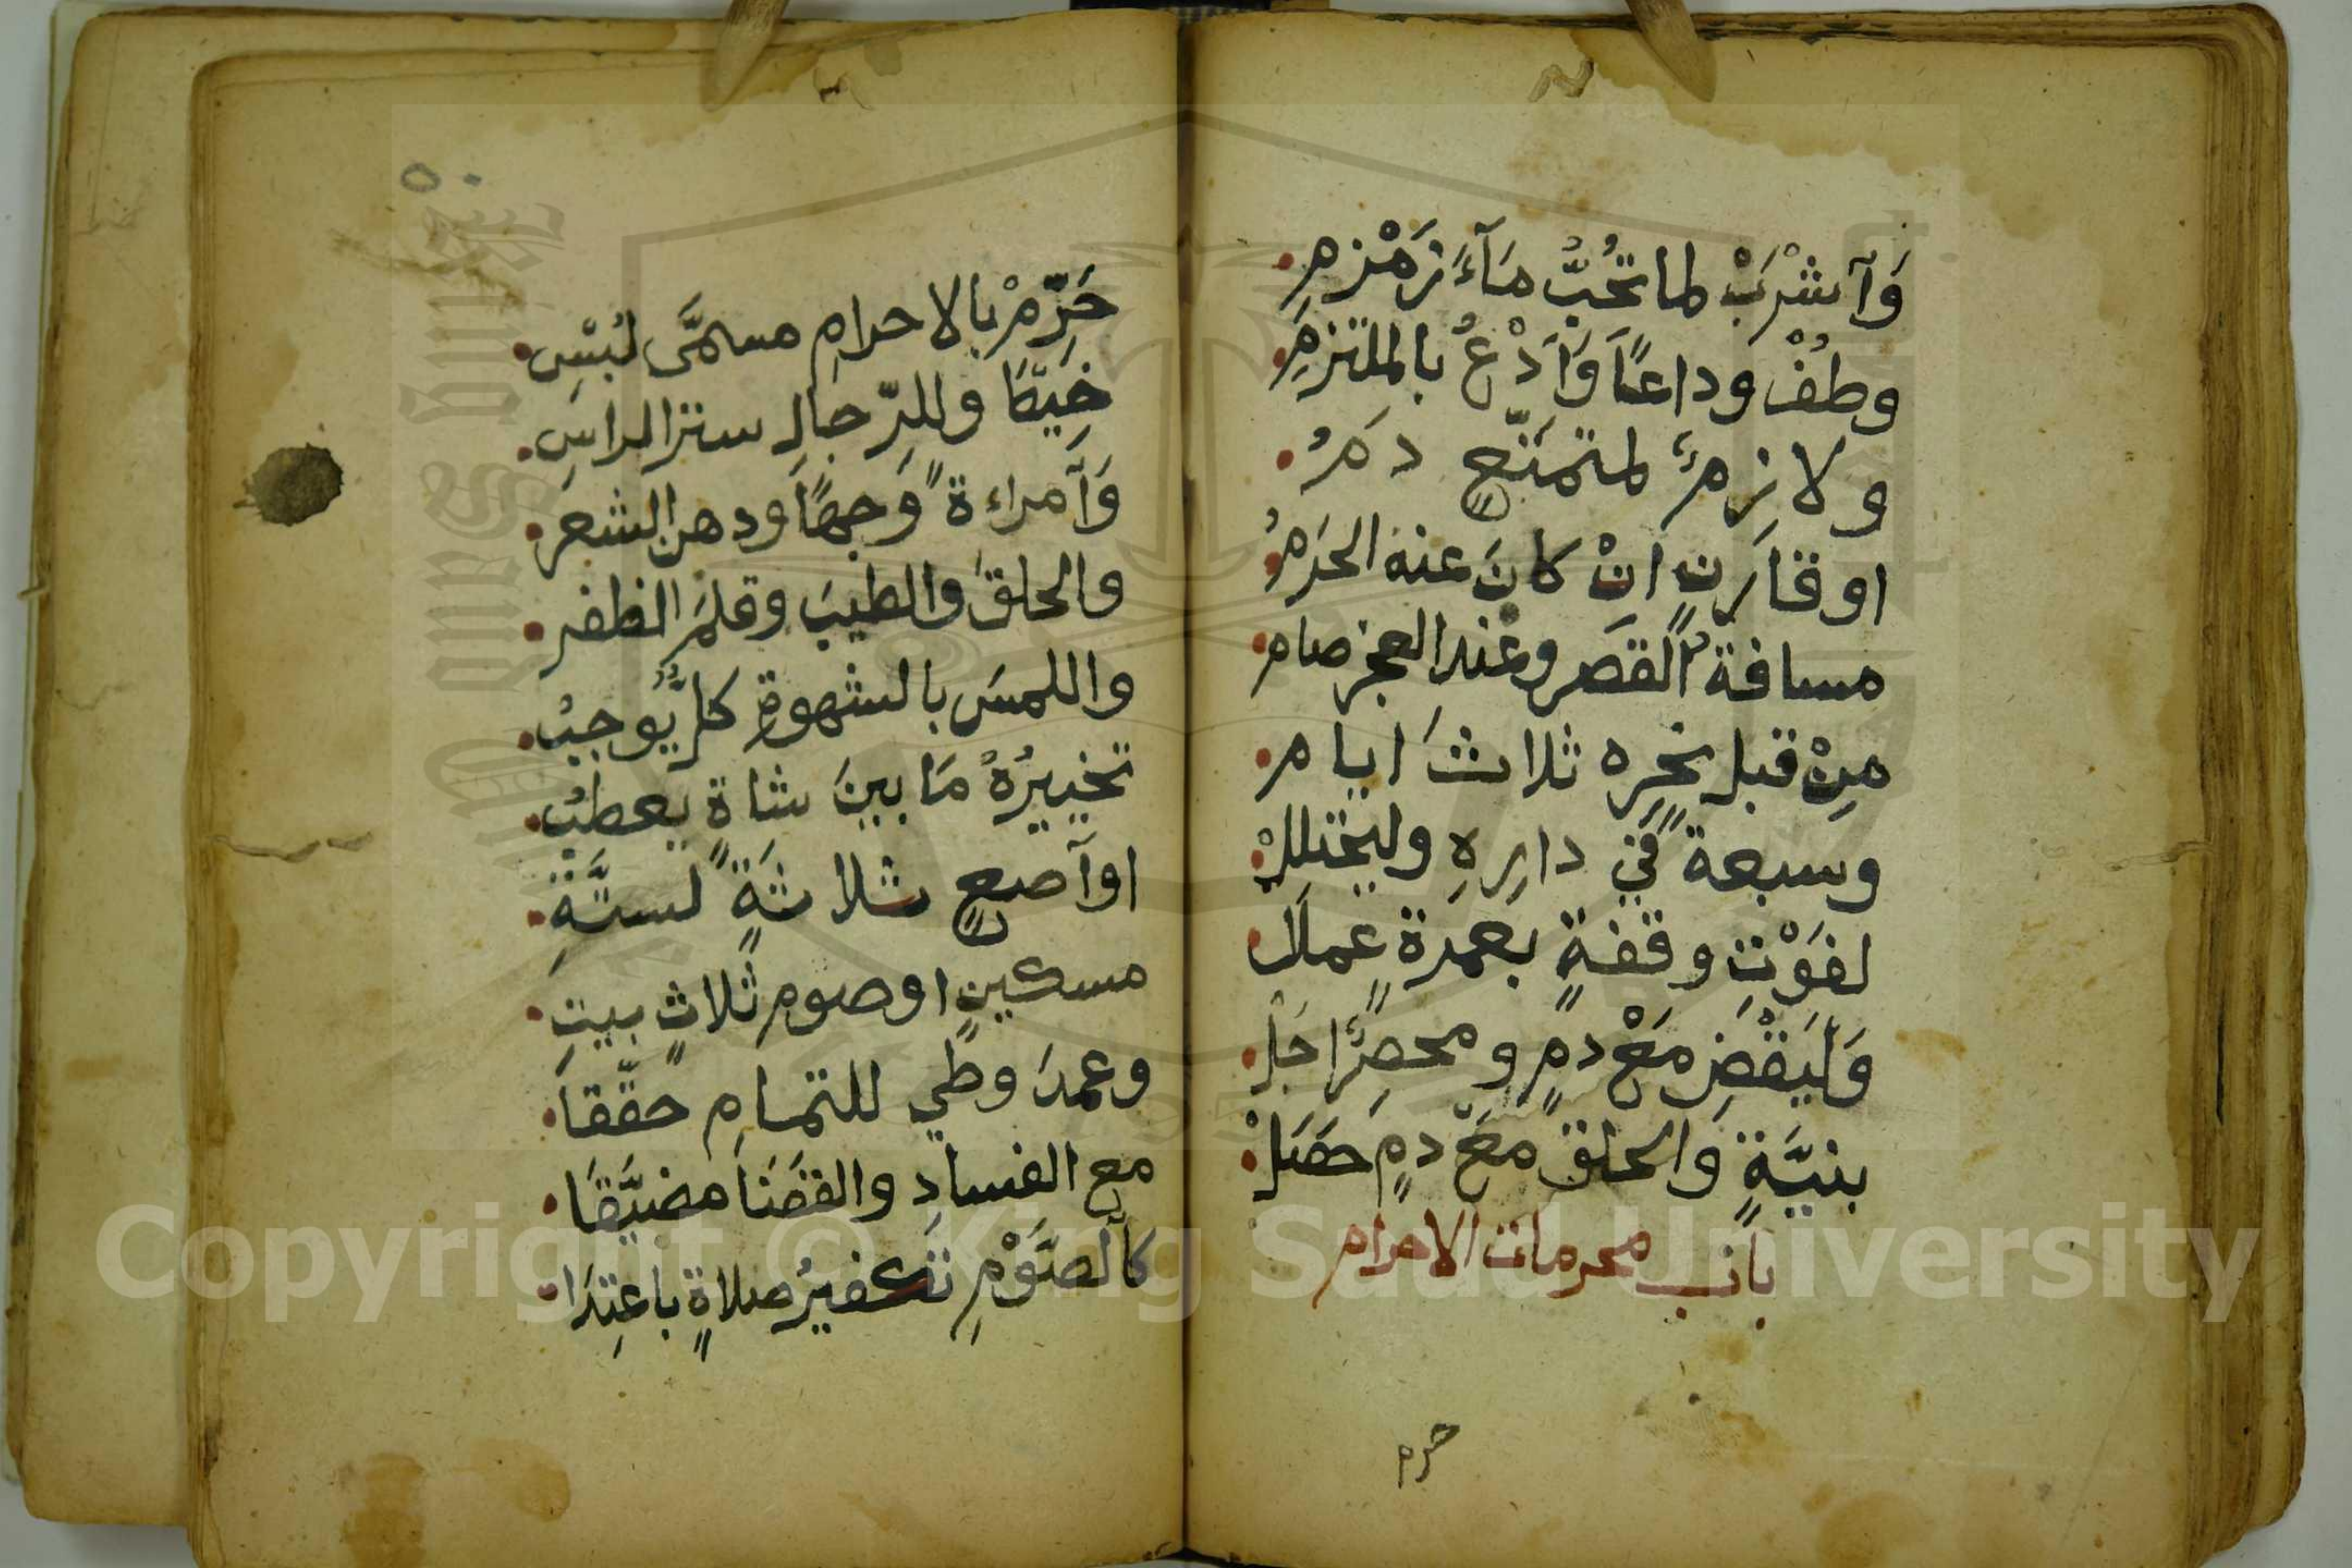 وَآشْرَبْ لما تحُبُّ مَآءَ زَمْزمِ
وطُفْ وداعًا وَآدْعُ بالملتزمِ
ولازمٌ لمتمتّعٍ دمُ
او قارنٍ انْ كانَ عنه الحَرمُ
مسافةَ القصر وعند العجز صام
مِنْ قبل نحرِه ثلاثَ ايام
وسبعةً في دارِهِ وليحتللْ
لفَوْتِ وقفةٍ بعمرةٍ عملْ
وَلْيَقْضِ مَعْ دمٍ ومحصرٌ احَلْ
بنيَّةٍ والحلق مَعْ دمٍ حصَلْ
باب محرمات الاحرام
حرم
٥٠
حَرّمْ بالاحرامِ مسمَّى لُبْسِ
خيطًا وللرّجالِ ستر الراسِ
وَآمراءةٌ وَجهًا ودهن الشعرِ
والحلقَ والطيبَ وقلمَ الظفر
واللمسَ بالشهوةِ كلٌّ يُوجبُ
تخييرُهُ مَا بينَ شاةٍ يعطبُ
او آصعٍ ثلاثةٍ لستَّةِ
مسكينٍ او صوم ثلاثٍ بيتِ
وعمدَ وطيٍ للتمامِ حقّقا
مع الفسادِ والقضَا مضيَّقَا
كالصَّوْمِ تكفيرُ صلاةٍ باعتِدَا
Copyright © King Saud University